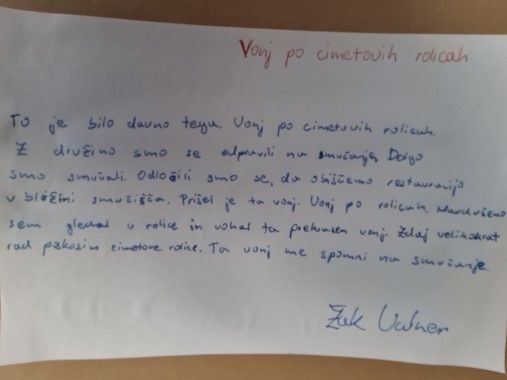 Vonj po cimetovih rolicah
To je bilo davno tega. Vonj po cimetovih rolicah.
Z družino smo se odpravili na smučanje. Dolgo
smo smučali. Odločili smo se, da obiščemo restavracijo
v bližini smučišča. Prišel je ta vonj. Vonj po rolicah. Navdušeno
sem gledal v rolice in vohal ta prekrasen vonj. Zdaj velikokrat
rad poskusim cimetove rolice. Ta vonj me spomni na smučanje.
Žak